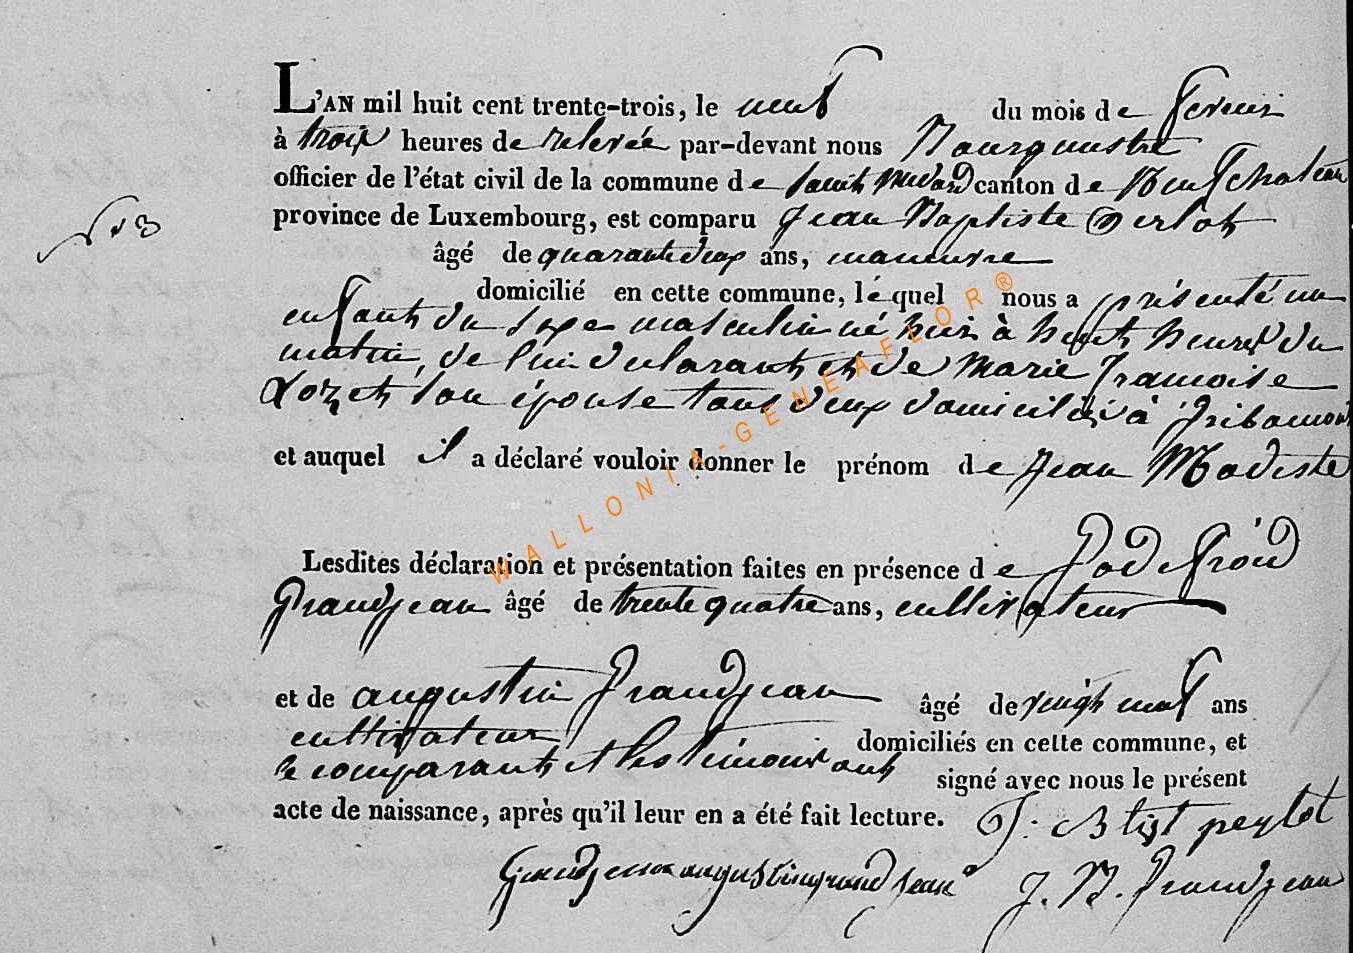 L'AN mil huit cent trente-trois, le neuf du mois de fevrier
à trois heures de relevée par-devant nous Bourgmestre
officier de l'état civil de la commune de saint Medard canton de Neufchateau
N° 3
province de Luxembourg, est comparu Jean Baptiste Perlot
âgé de quarante deux ans, manœuvre
domicilié en cette commune, lequel nous a présenté un
enfant du sexe masculin né hier à huit heures du
matin, de lui déclarant et de Marie françoise
son épouse tous deux domiciliés à Gribomont
et auquel il a déclaré vouloir donner le prénom de Jean Modeste
Lesdites déclaration et présentation faites en présence de Godefroid
Grandjean âgé de trente quatre ans, cultivateur
et de augustin Grandjean âgé de vingt neuf ans
cultivateur domiciliés en cette commune, et
le comparant et les témoins ont signé avec nous le présent
acte de naissance, après qu'il leur en a été fait lecture. J: Btist perlot
Grandjean augustin grandjean J. B. Grandjean
WALLONIA-GENEAFLOR®